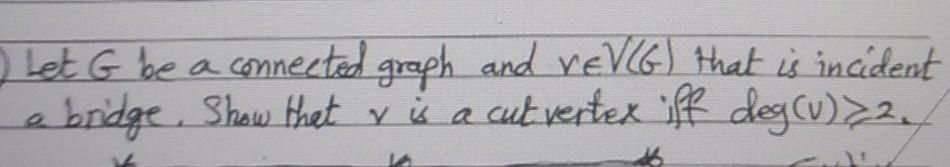 ) Let G be a connected graph and v∈V(G) that is incident
a bridge. Show that v is a cut vertex iff deg(v)≥2.